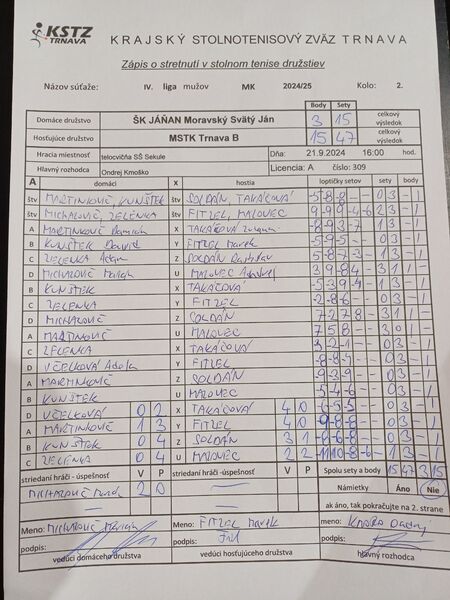 KSTZ
TRNAVA
KRAJSKÝ STOLNOTENISOVÝ ZVÄZ TRNAVA
Zápis o stretnutí v stolnom tenise družstiev
Názov súťaže: IV. liga mužov MK 2024/25 Kolo: 2.
Body Sety
Domáce družstvo ŠK JÁŇAN Moravský Svätý Ján 3 15 celkový výsledok
Hosťujúce družstvo MSTK Trnava B 15 47 celkový výsledok
Hracia miestnosť telocvičňa SŠ Sekule Dňa: 21.9.2024 16:00 hod.
Hlavný rozhodca Ondrej Kmoško Licencia: A číslo: 309
A domáci X hostia loptičky setov sety body
štv MARTINKOVIČ, KUNŠTEK štv SOLDÁN, TAKÁČOVÁ -5 -8 -8 - - 0 3 - 1
štv MICHALOVIČ, ZELENKA štv FITZEL, MALOVEC
A MARTINKOVIČ X TAKÁČOVÁ
B KUNŠTEK David Y FITZEL Marek -5 -9 -5 - - 0 3 - 1
C ZELENKA Adam Z SOLDÁN Rastislav
D MICHALOVIČ Marian U MALOVEC 3 1 1 -
B KUNŠTEK X TAKÁČOVÁ
C ZELENKA Y FITZEL -2 -8 -6 - - 0 3 - 1
D MICHALOVIČ Z SOLDÁN 3 1 1 -
A MARTINOVIČ U MALOVEC 7 5 8 - - 3 0 1 -
C ZELENKA X TAKÁČOVÁ -3 -2 -1 - - 0 3 - 1
D VČELKOVÁ Y FITZEL 0 3 - 1
A MARTINKOVIČ Z SOLDÁN -9 -3 -9 - - 0 3 - 1
B KUNŠTEK U MALOVEC -5 -4 -6 - - 0 3 - 1
D VČELKOVÁ 0 2 X TAKÁČOVÁ 4 0 -6 -5 -3 - - 0 3 - 1
A MARTINKOVIČ 1 3 Y FITZEL 4 0 -9 -8 -8 - - 0 3 - 1
B KUNŠTEK 0 4 Z SOLDÁN 3 1 -8 -6 -8 - - 0 3 - 1
C ZELENKA 0 4 U MALOVEC 2 2 -11 10 -8 -6 - 1 3 - 1
striedaní hráči -úspešnosť V P striedaní hráči - úspešnosť V P Spolu sety a body 15 47 3 15
MICHALOVIČ Marek 2 0 Námietky Áno Nie
ak áno, tak pokračujte na 2. strane
Meno: MICHALOVIČ Marian Meno: FITZEL Marek meno:
podpis: podpis: podpis:
vedúci domáceho družstva vedúci hosťujúceho družstva hlavný rozhodca